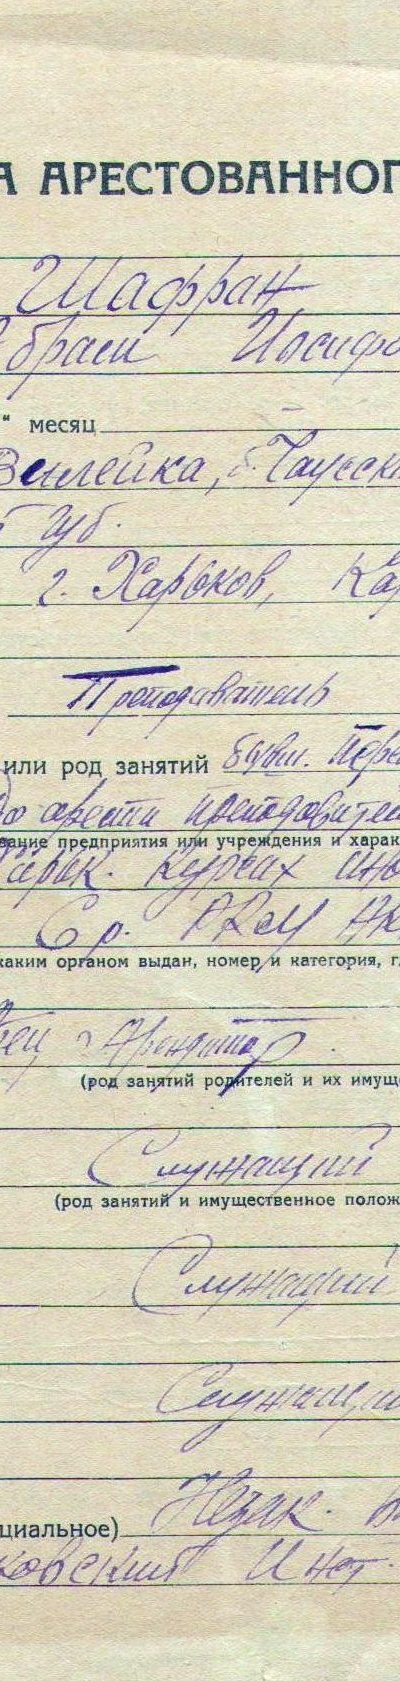 А АРЕСТОВАННОГ
Шафран
Иосифо
“ месяц
Вилейка, б.
Губ.
г. Харьков, Ка
Преподаватель
или род занятий бывш. Пере
до ареста преподавател
вание предприятия или учреждения и харак
Курсах
Ср.
каким органом выдан, номер и категория, г
Арендатор
(род занятий родителей и их имуще
Служащий
(род занятий и имущественное полож
Служащий
Служащи
циальное) Незак.
ковский Инст.